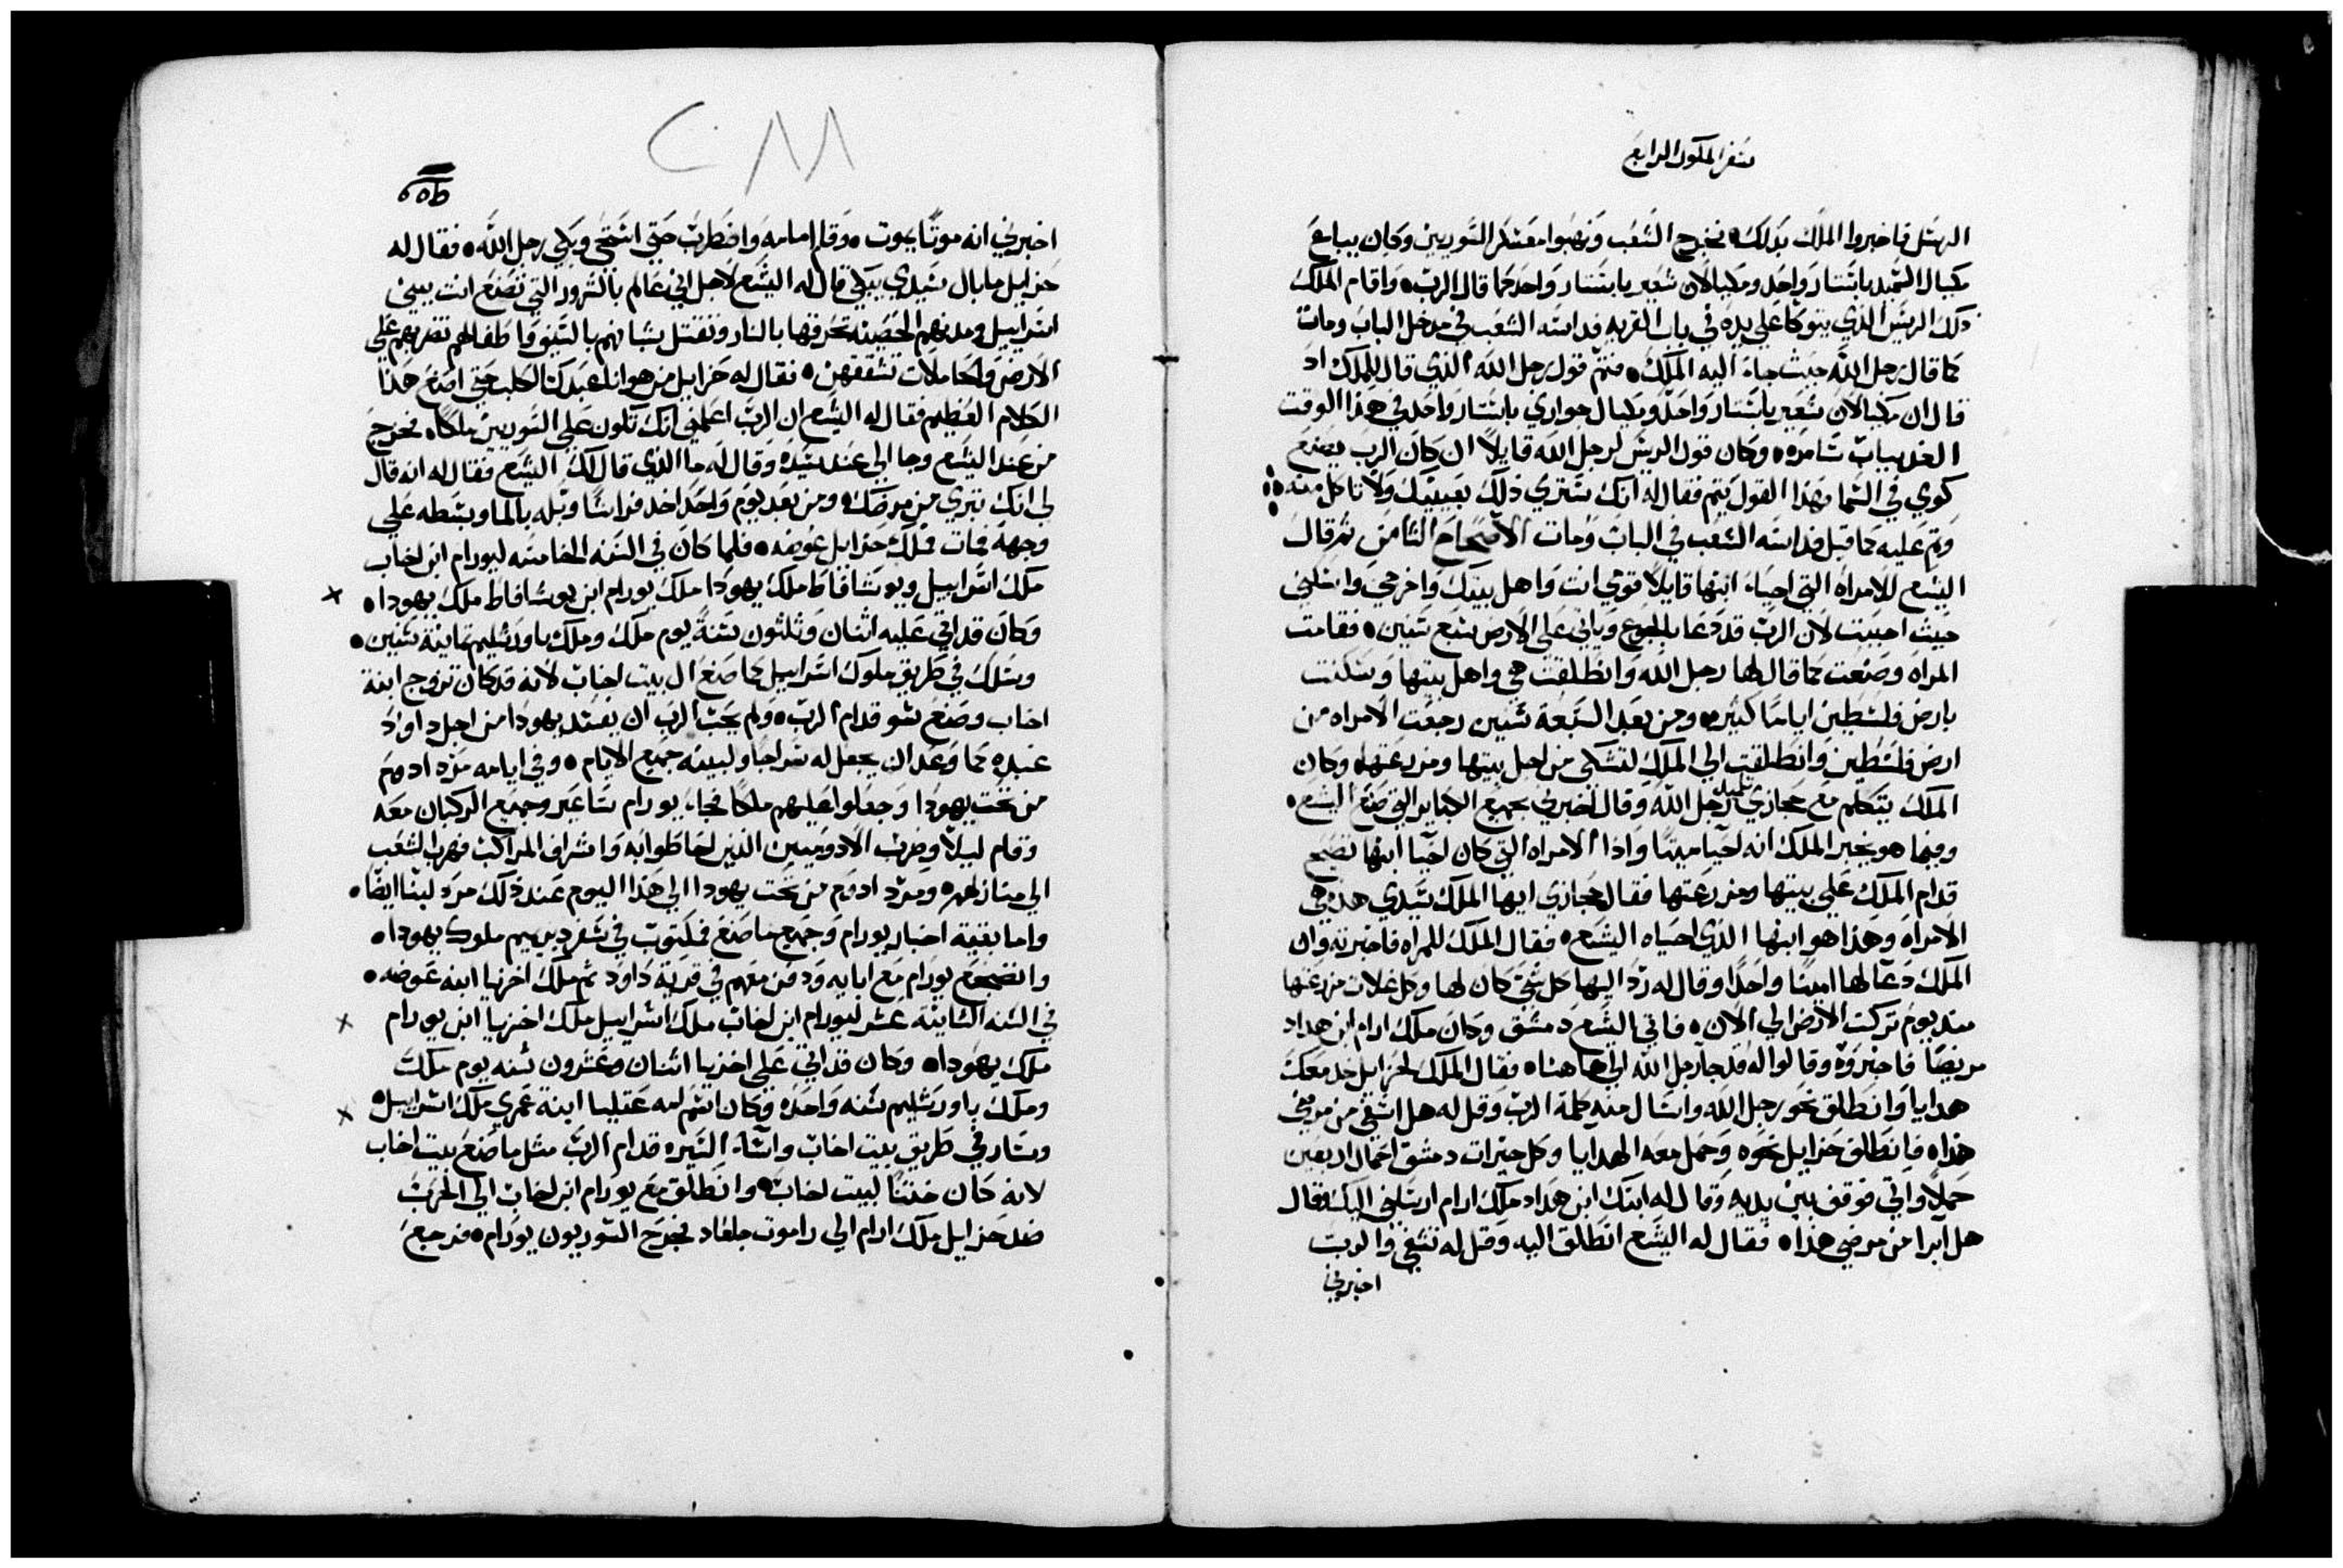 سفر الملوك الرابع
الرسل فاخبروا الملك بذلك، فخرج الشعب ونهبوا معسكر السوريين وكان يباع
مكيال السميد باستار واحد ومكيالان شعير باستار واحد كما قال الرب، واقام الملك
ذلك الريس الذي يتوكا على يده في باب القريه فداسه الشعب في مدخل الباب ومات
كما قال رجل الله حيث جاء اليه الملك، فتم قول رجل الله الذي قال للملك اذ
قال ان مكيالان شعير باستار واحد ومكيال حواري باستار واحد في هذا الوقت
الغد بباب سامره، وكان قول الريس لرجل الله قايلا ان كان الرب يصنع
كوي في السما فهذا القول يتم فقال له انك سترى ذلك بعينيك ولا تاكل منه،
وتم عليه كما قبل فداسه الشعب في الباب ومات الاصحاح الثامن ثم قال
اليشع للامراه التي احياء ابنها قايلا قومي انت واهل بيتك واخرجي واسكني
حيث احببت لان الرب قد دعا بالجوع وياتي على الارض سبع سنين، فقامت
المراه وصنعت كما قال لها رجل الله وانطلقت هي واهل بيتها وسكنت
بارض فلسطين اياما كثيره، ومن بعد السبعة سنين رجعت الامراه من
ارض فلسطين وانطلقت الي الملك لتشكى من اجل بيتها ومزرعتها، وكان
الملك يتكلم مع حجازي تلميذ رجل الله وقال اخبرني بجميع الكباير التي صنع اليشع،
وفيما هو يخبر الملك انه احيا ميتا واذا الامراه التي كان احيا ابنها تضج
قدام الملك على بيتها ومزرعتها فقال حجازي ايها الملك سيدي هذه هي
الامراه وهذا هو ابنها الذي احياه اليشع، فقال الملك للمراه فاخبرته وان
الملك دعا لها امينا واحدا وقال له رد اليها كل شي كان لها وكل غلات مزرعتها
منذ يوم تركت الارض الي الان، فاتي اليشع دمشق وكان ملك ارام ابن هداد
مريضا فاخبروه وقالوا له قد جا رجل الله الي هاهنا، فقال الملك لحزايل خذ معك
هدايا وانطلق نحو رجل الله واسال منه كلمة الرب وقل له هل اشفى من مرضي
هذا، فانطلق حزايل نحوه وحمل معه الهدايا وكل خيرات دمشق احمال اربعين
حملا واتي فوقف بين يديه وقال له ابنك ابن هداد ملك ارام ارسلني اليك وقال
هل ابرا من مرضي هذا، فقال له اليشع انطلق اليه وقل له تشفى والرب
اخبرني
٢٨٨
اخبرني انه موتا يموت، وقام امامه واضطرب حتي استحى وبكى رجل الله، فقال له
حزايل ما بال سيدي يبكي قال له اليشع لاجل اني عالم بالشرور التي تصنع انت ببني
اسراييل ومدنهم الحصينه تحرقها بالنار وتقتل شبانهم بالسيف واطفالهم تضربهم على
الارض والحاملات تشققهن، فقال له حزايل من هو انا عبدك الكلب حتي اصنع هذا
الكلام العظيم فقال له اليشع ان الرب اعلمني انك تكون على السوريين ملكا، فخرج
من عند اليشع وجا الي عند سيده وقال له ما الذي قال لك اليشع فقال له انه قال
لي انك تبري من مرضك، ومن بعد يوم واحد اخذ فراشا وبله بالما وبسطه على
وجهه فمات فملك حزايل عوضه، فلما كان في السنه الخامسه ليورام ابن اخاب
ملك اسراييل ويوشافاط ملك يهودا ملك يورام ابن يوشافاط ملك يهودا،
وكان قد اتي عليه اثنان وثلثون سنة يوم ملك وملك باورشليم ثمانية سنين،
وسلك في طريق ملوك اسراييل كما صنع ال بيت اخاب لانه قد كان تزوج ابنة
اخاب وصنع سو قدام الرب، ولم يحب الرب ان يفسد يهودا من اجل داوود
عبده كما وعد ان يجعل له سراجا ولبيته جميع الايام، وفي ايامه مرد ادوم
من تحت يهودا وجعلوا عليهم ملكا فجاء يورام ساعير وجميع الركبان معه
وقام ليلا وضرب الادوميين الذين احاطوا به واشراف المراكب فهرب الشعب
الي منازلهم، ومرد ادوم من تحت يهودا الي هذا اليوم عند ذلك مرد لبنا ايضا،
واما بقية اخبار يورام وجميع ما صنع فمكتوب في سفر دبريهيم ملوك يهودا،
وانضجع يورام مع ابايه ودفن معهم في قرية داود ثم ملك اخزيا ابنه عوضه،
في السنه الثانية عشر ليورام ابن اخاب ملك اسراييل ملك اخزيا ابن يورام
ملك يهودا، وكان قد اتي على اخزيا اثنان وعشرون سنه يوم ملك
وملك باورشليم سنه واحده وكان اسم امه عتليا ابنة عمري ملك اسراييل،
وسار في طريق بيت اخاب واساء السيره قدام الرب مثل ما صنع بيت اخاب
لانه كان ختنا لبيت اخاب، وانطلق مع يورام ابن اخاب الي الحرب
ضد حزايل ملك ارام الي راموت جلعاد فجرح السوريون يورام، فرجع